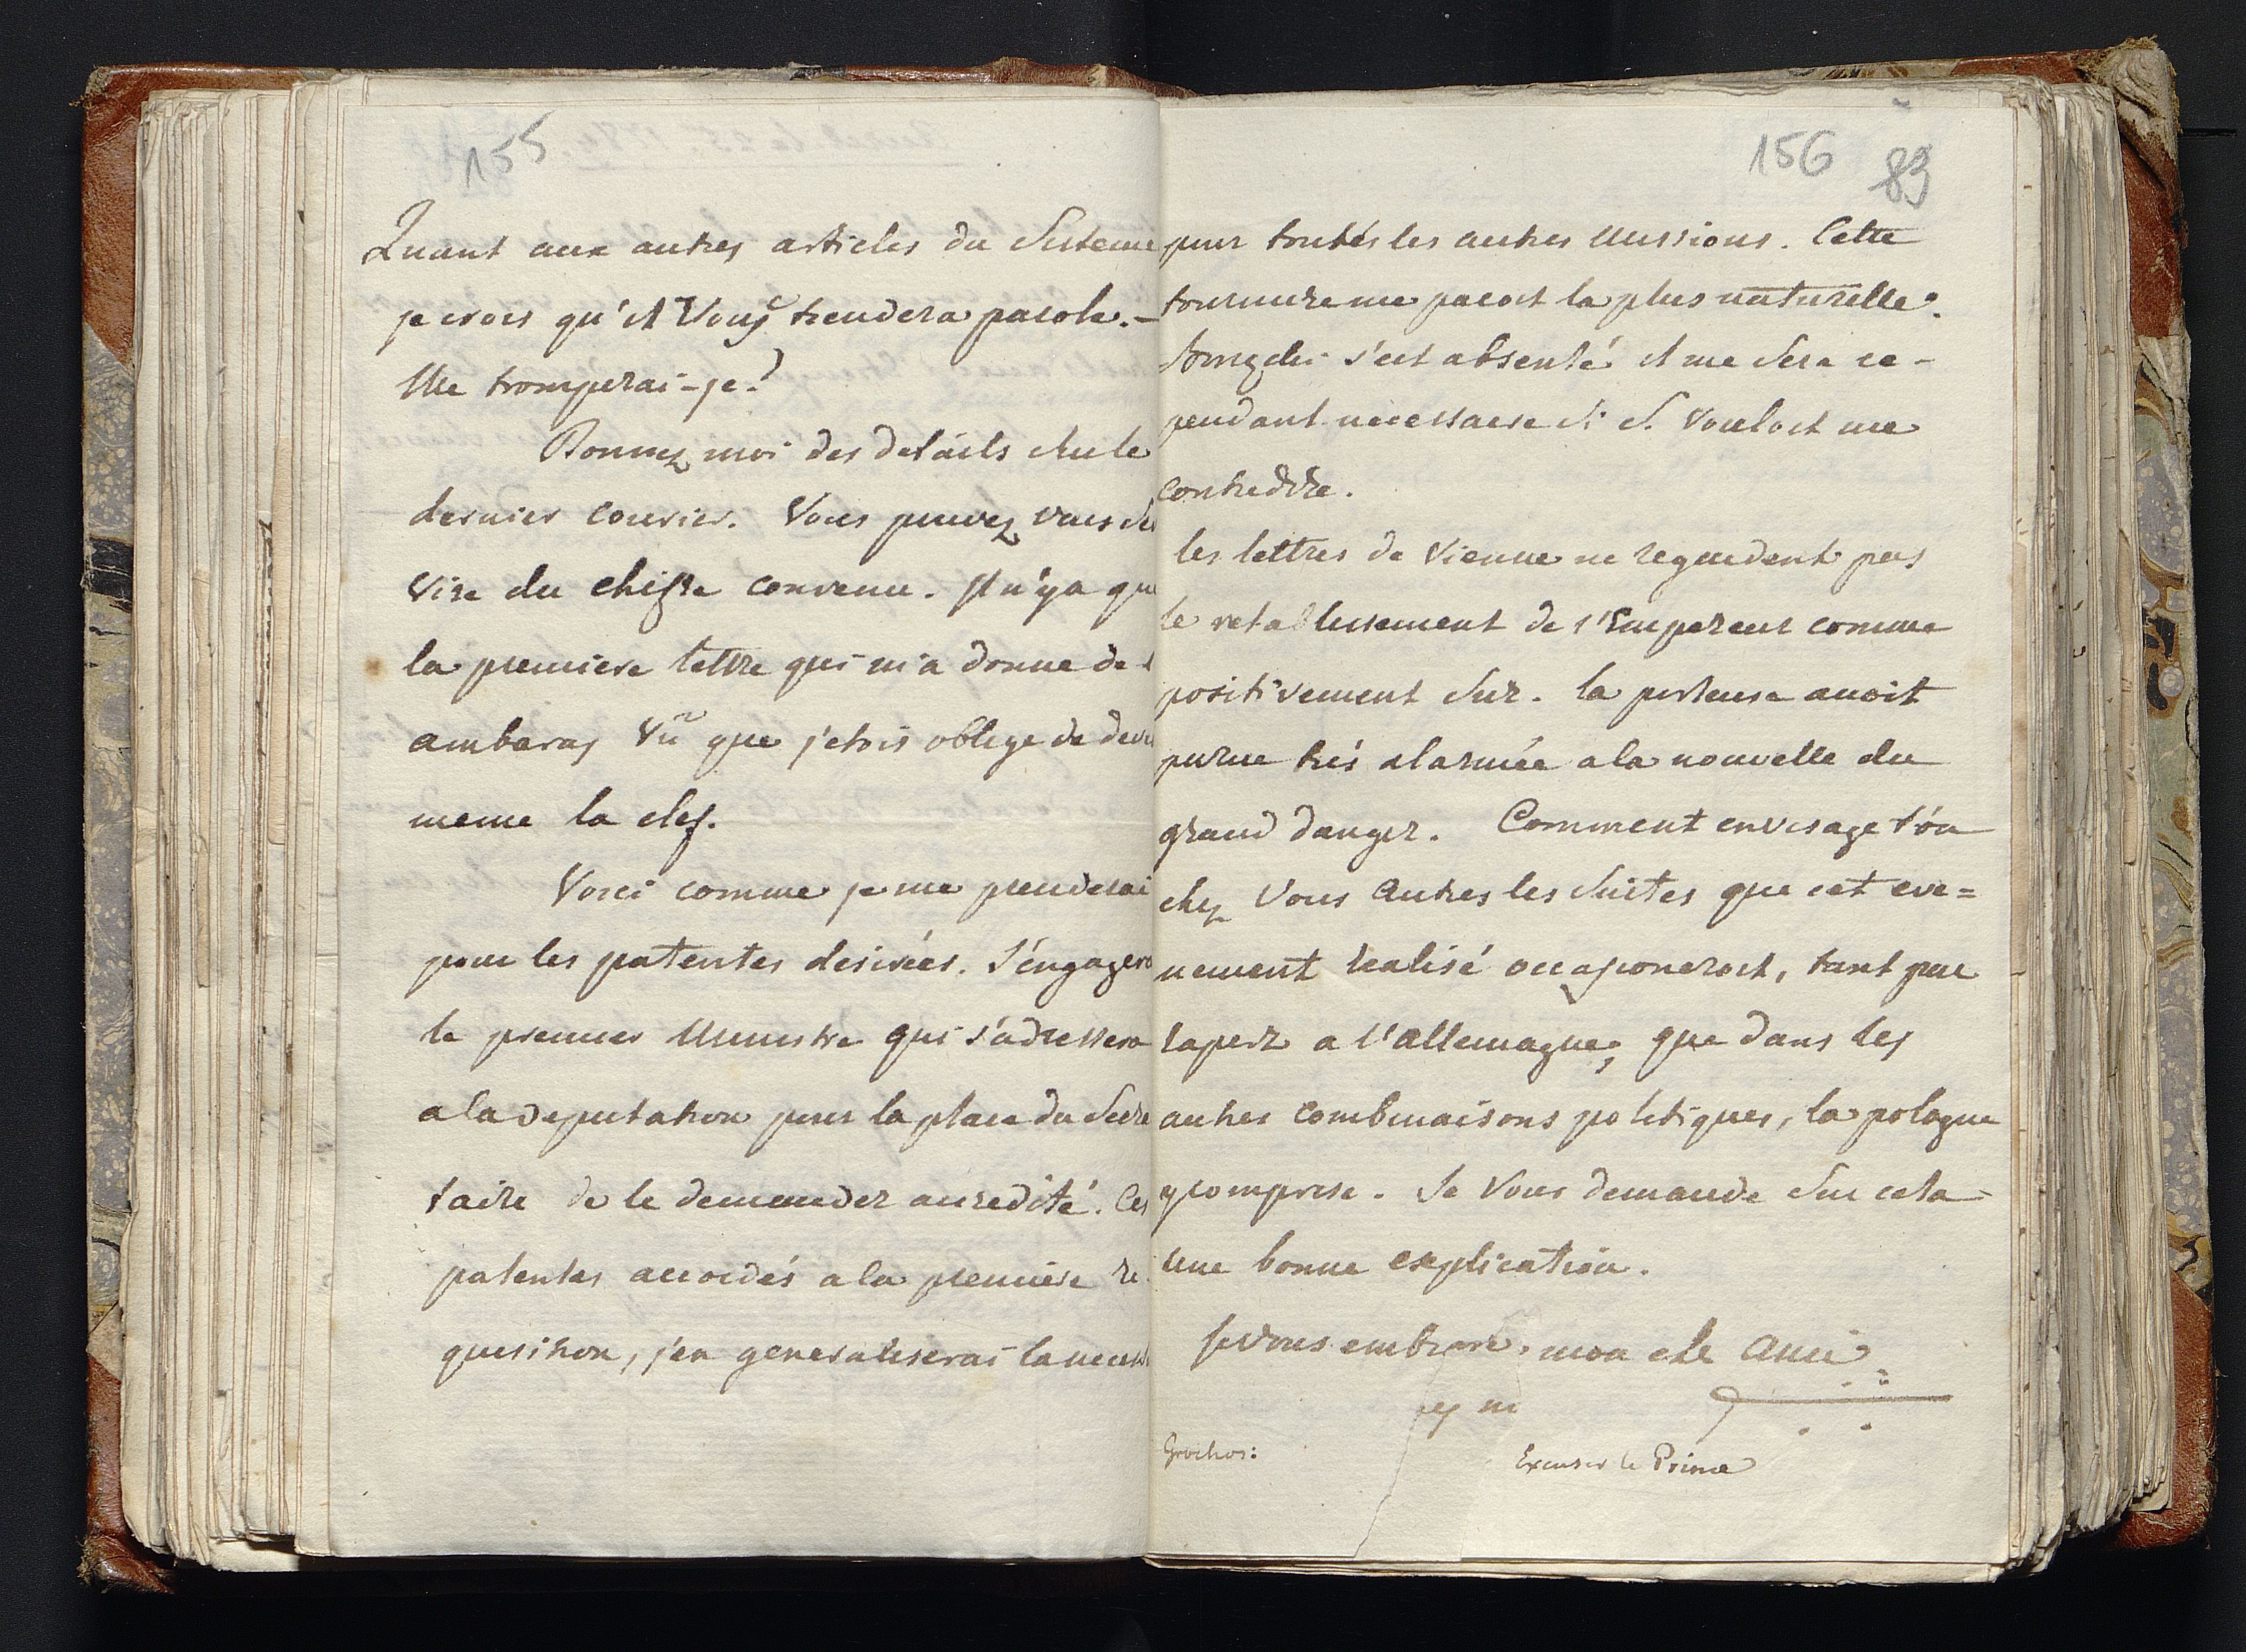 155
Quant aux autres articles du Sisteme
je crois qu'il Vous tiendera parole. –
Me tromperai-je?
Donnez moi des details sur le
dernier courier. Vous pouvez vous Se
vire du chifre convenu. Il n'y a que
la premiere lettre qui m'a donne de l
ambaras Vû que j'etois oblige de devi
meme la clef.
Voici comme je me prenderai
pour les patentes desirées. J'engagero
le premier Ministre qui s'adressera
a la Deputation pour la place du Secre
taire de le demander accredité. Ces
patentes accordés a la premiere re
quesition, j'en generaliserai la necess
156 83
pour toutes les autres Missions. Cette
tournure me paroit la plus naturelle.
s'est absenté il me Sera ce-
pendant necessaire Si S. Vouloit me
contredire.
les lettres de Vienne ne regardent pas
le retablissement de l'Empereur comme
positivement Sur. la posteuse avoit
parue trés alarmée a la nouvelle du
grand danger. Comment envisage t'on
chez Vous Autres les Suites que cet eve=
nement realisé occasioneroit, tant par
raport a l'Allemagne, que dans les
autres combinaisons politiques, la pologne
y comprise. Je Vous demande Sur cela
une bonne explication.
Je Vous embrasse, mon cher Ami
Grochos:
Excuser le Prince